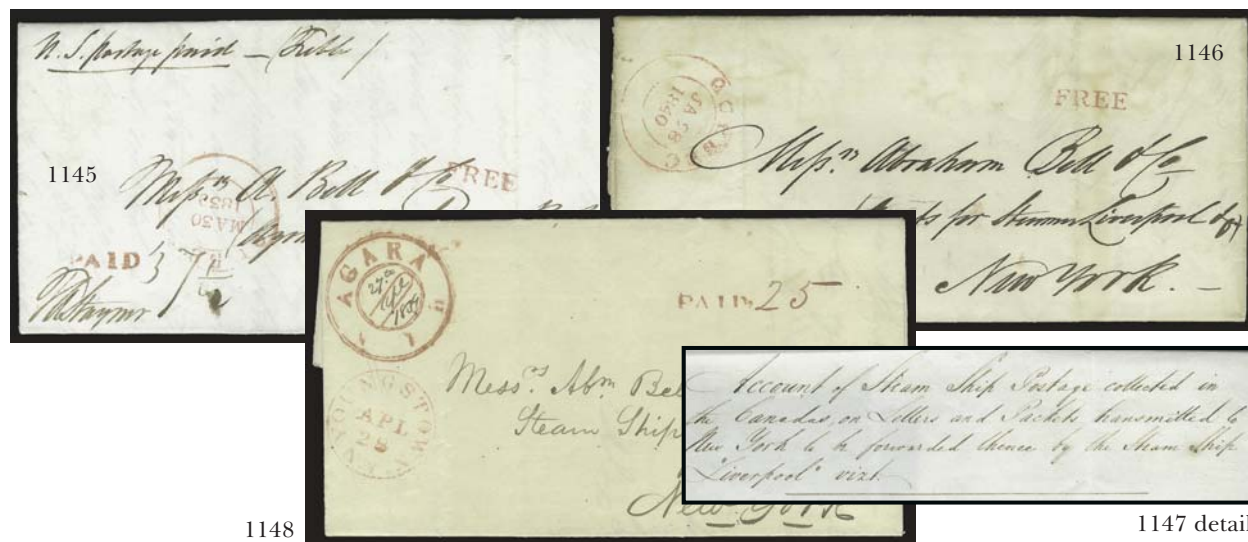 U.S. postage paid — (Dble)
1145
MA 30
FREE
Messrs A. Bell & Co
PAID 3
TAStayner
1146
QUEBEC
JA 28
1840
FREE
Messrs Abraham Bell & Co
for Steamer Liverpool &c)
New York. —
AGARA
27th
1839
PAID 25
YOUNGSTOWN
APL
28
Messrs. Abm Bel
Steam Ship
New York
1148
Account of Steam Ship Postage collected in
the Canadas, on Letters and Packets, transmitted to
New York to be forwarded thence by the Steam Ship
"Liverpool" vizt.
1147 detail